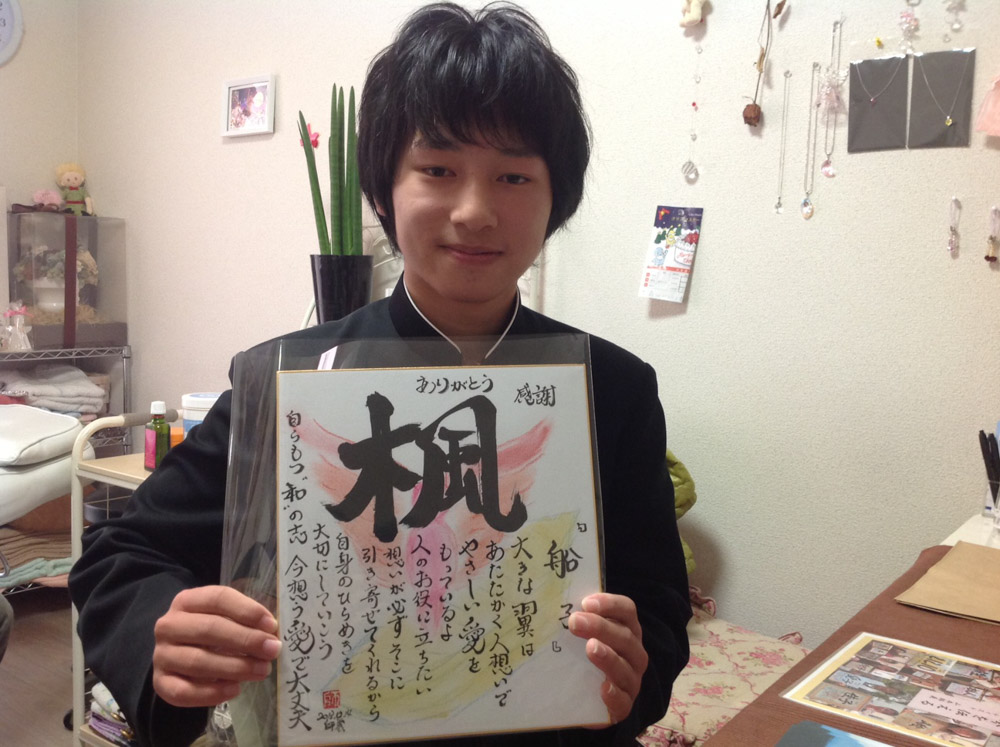 ありがとう
感謝
楓
船子
大きな翼は
あたたかく人想いで
やさしい愛を
もっているよ
人のお役に立ちたい
想いが必ずそこに
引き寄せてくれるから
自身のひらめきを
大切にしていこう
自らもつ"和"の志 今想う愛で大丈夫